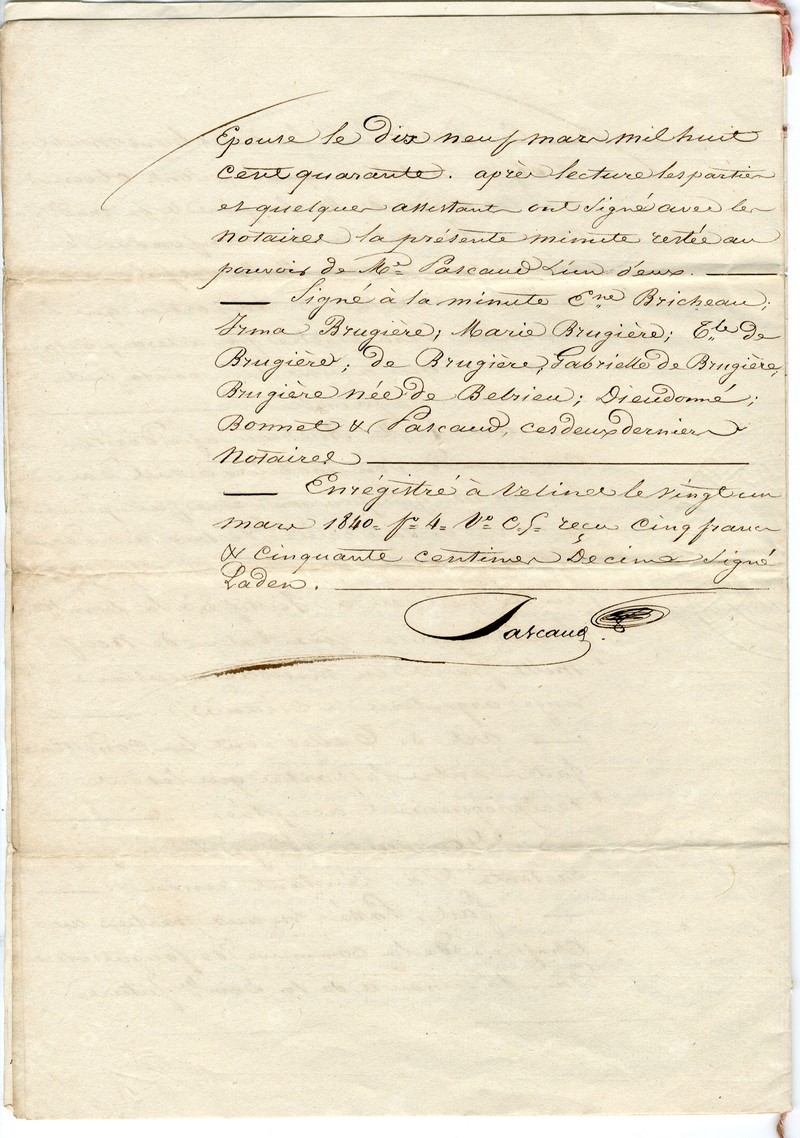 Epouse le dix neuf mars mil huit
cent quarante. après lecture les parties
et quelques assistants ont signé avec les
Notaires la présente minute restée au
pouvoir de Mr. Pascaud L'un d'eux. —
— Signé à la minute Ene Bricheau;
Irma Brugière; Marie Brugière; Ele de
Brugière; de Brugière; Gabrielle de Brugière;
Brugière née de Belrieu; Dieudonné;
Bonnet & Pascaud, ces deux derniers
Notaires —
— Enrégistré à Velines le vingt un
mars 1840= fo 4= Vo C.5= reçu cinq francs
& cinquante centimes Décimes Signé
Laden. —
Pascaud